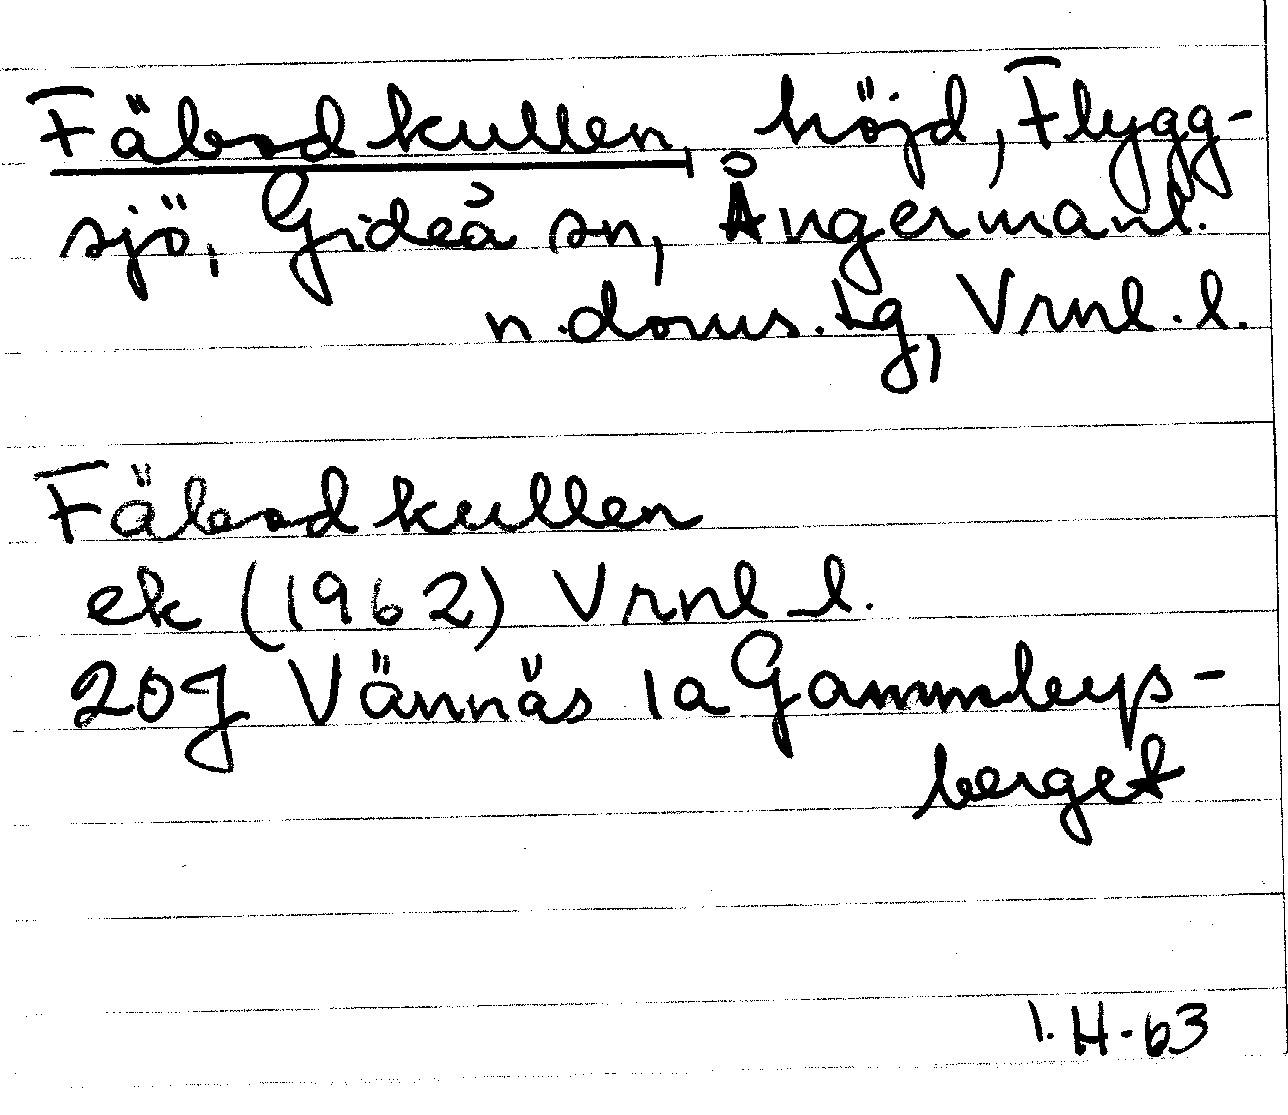 Fäbodkullen, höjd, Flygg-
sjö, Gideå sn, Ångermanl.
n. doms. tg, Vrnl. l.
Fäbodkullen
ek (1962) Vrnl l.
20J Vännäs 1a Gammleys-
berget
I. H-63